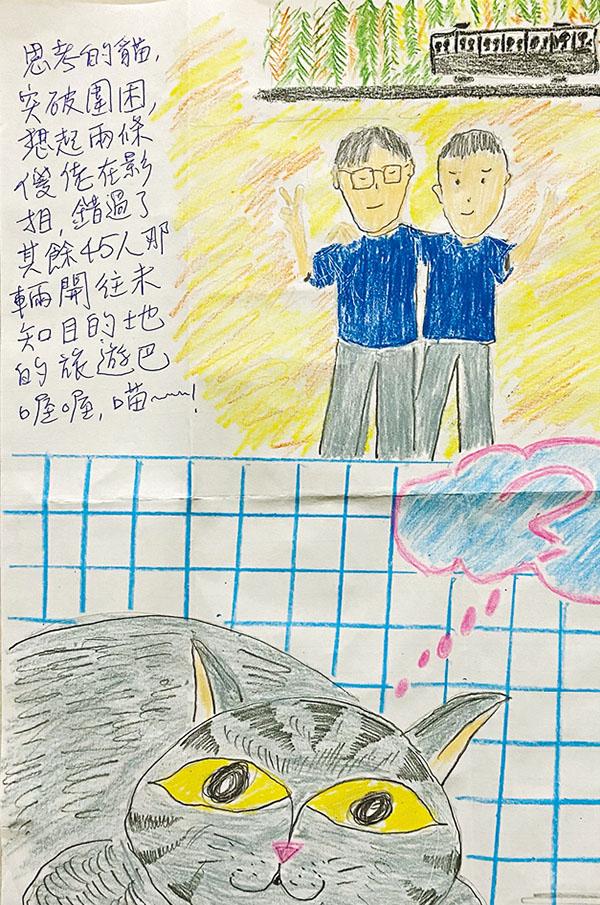 思考的貓，
突破圍困，
想起兩條
傻佬在影
相，錯過了
其餘45人那
輛開往未
知目的地
的旅遊巴
喔喔，喵~~~!
?